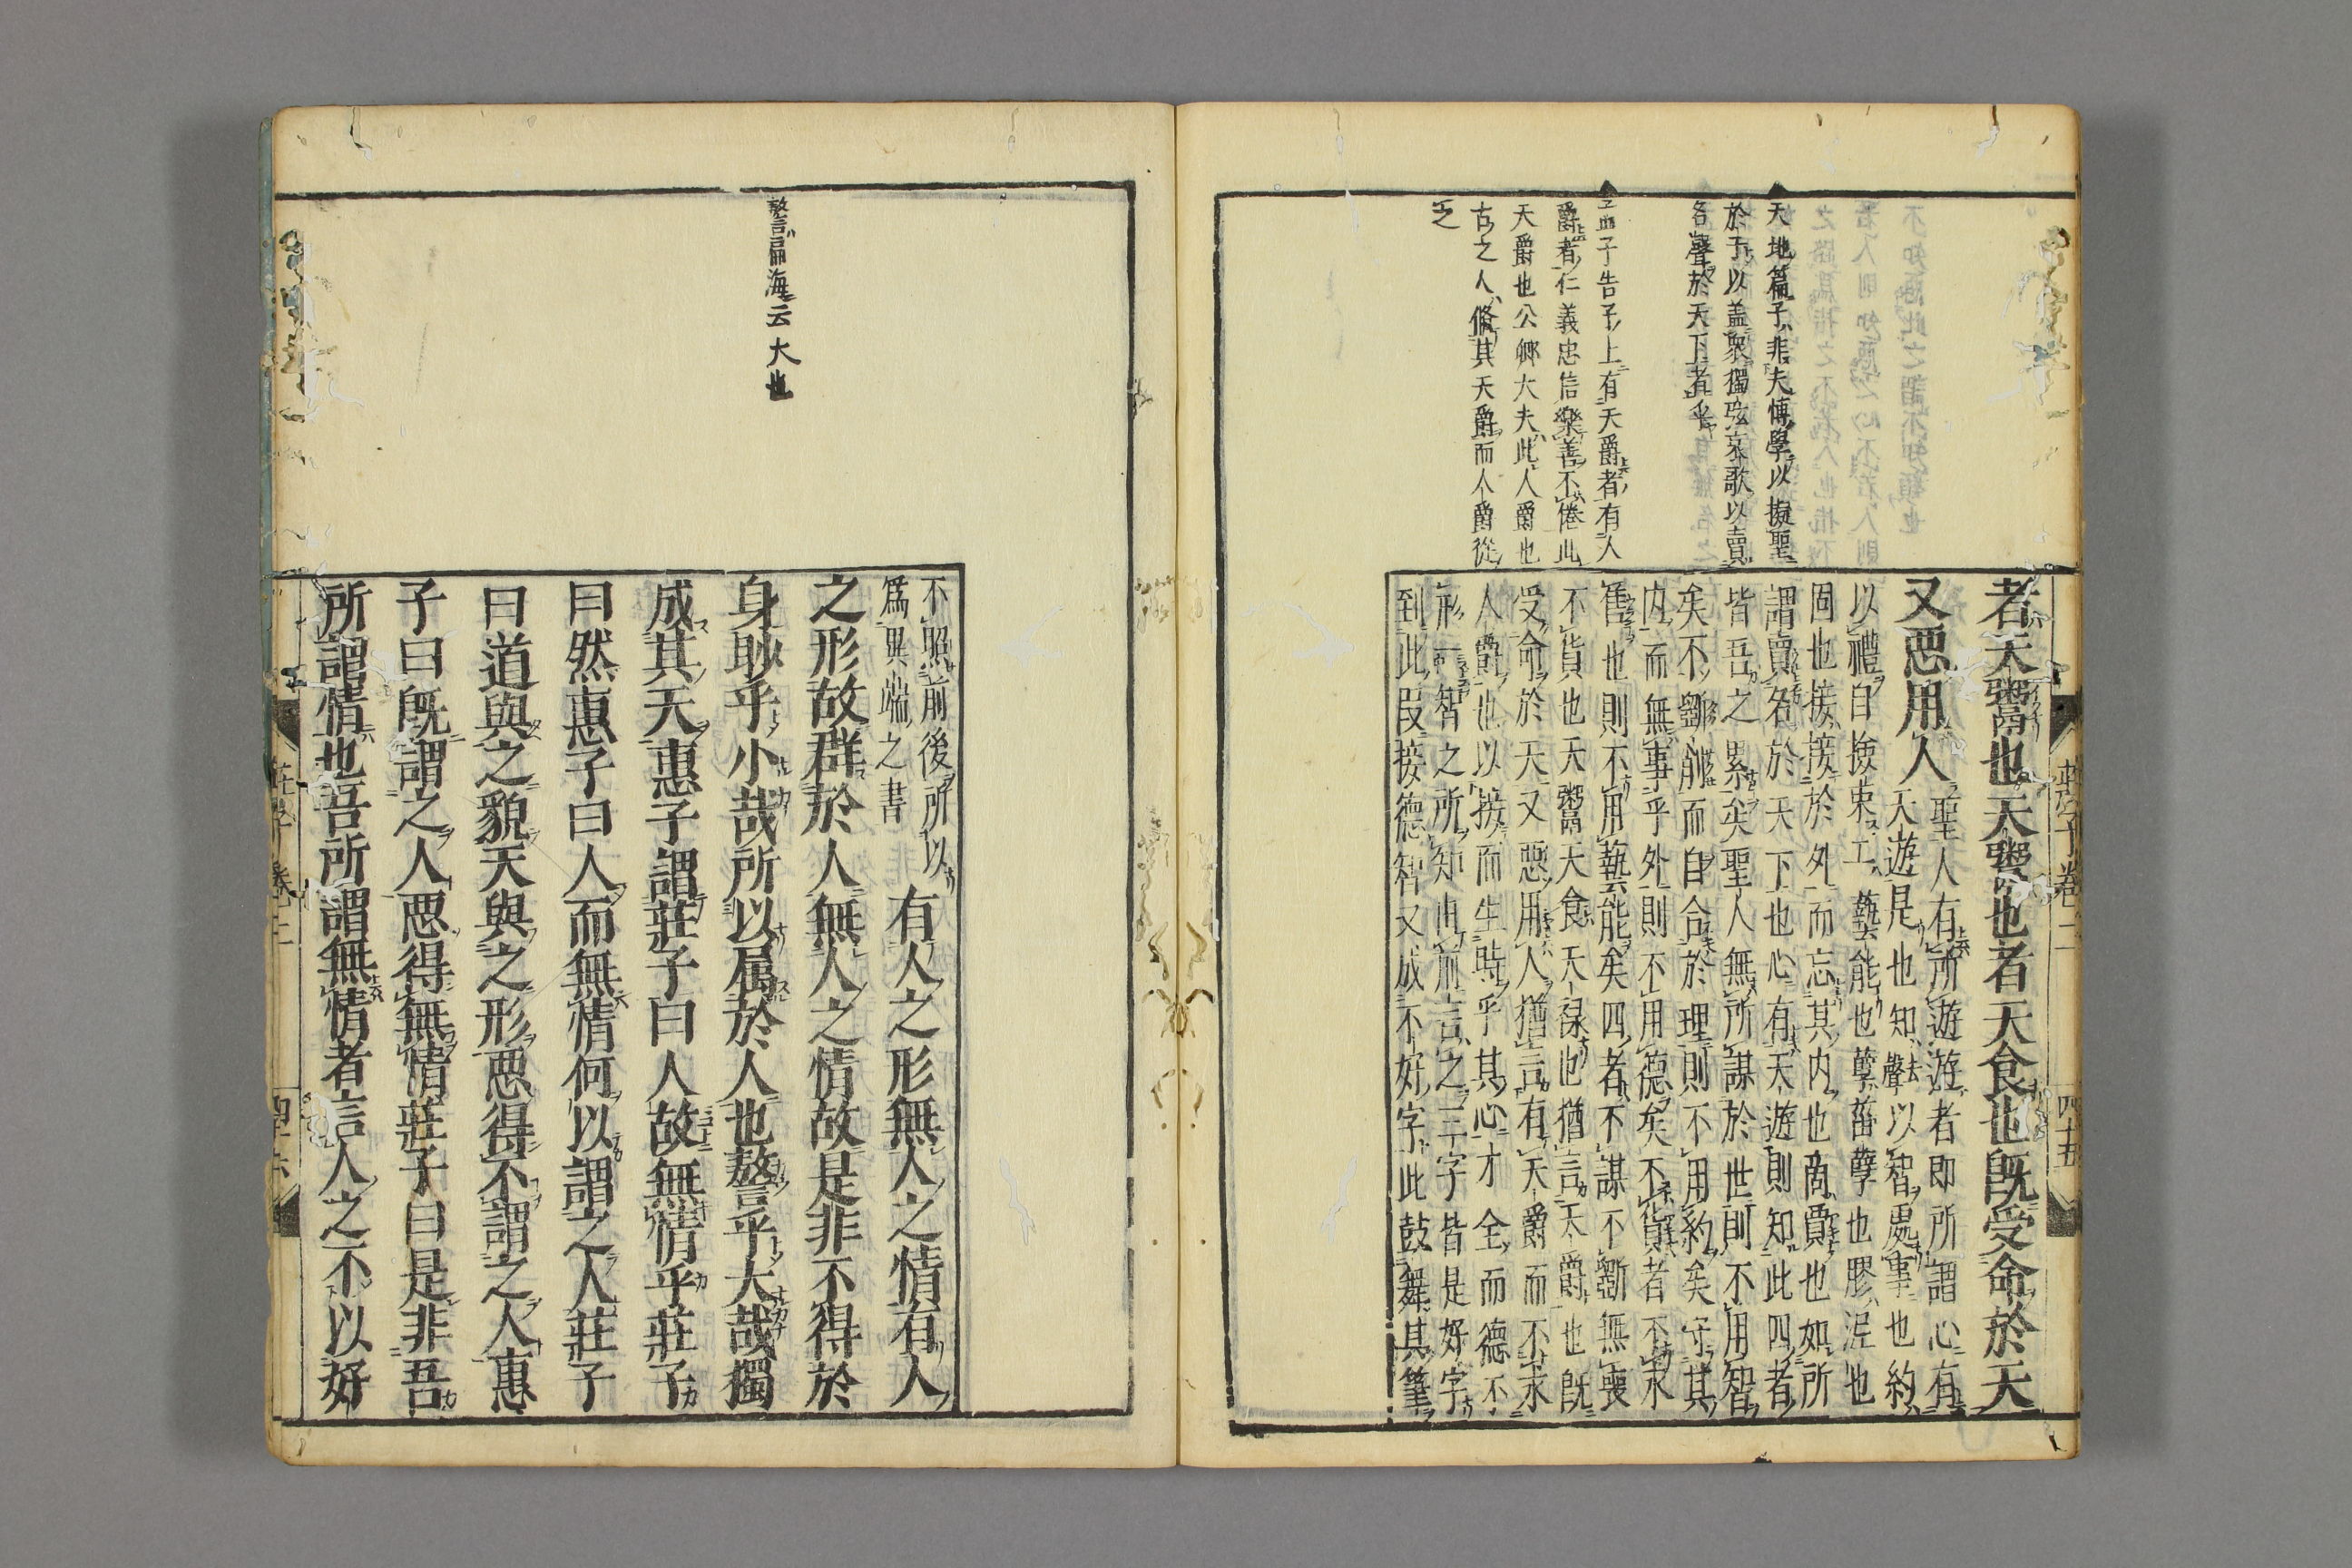 天地篇子非夫博學以擬聖
於于以盖衆獨弦哀歌以賣
名聲於天下者乎
孟子告子上有天爵者有人
爵者仁義忠信樂善不倦此
天爵也公卿大夫此人爵也
古之人脩其天爵而人爵從
之
者天鬻也天鬻也者天食也既受命於天
又惡用人
聖人有所遊遊者即所謂心有
天遊是也知去聲以智處事也約
以禮自撿束工藝能也孽蘖孽也膠泥也
固也接接於外而忘其内也商賈也如所
謂賣名於天下也心有天遊則知此四者
皆吾之累矣聖人無所謀於世則不用智
矣不斵削而自合於理則不用約矣守其
内而無事乎外則不用德矣不貨者不求
售也則不用藝能矣四者不謀不斵無喪
不貨也天鬻天食天祿也猶言天爵也既
受命於天又惡用人猶言有天爵而不求
人爵也以接而生時乎其心才全而德不
形一智之所知前言之三字皆是好字
到此叚接德智又成不好字此鼓舞其筆
莊子卷二
四十五
警扁海云大也
不照前後所以
爲異端之書
有人之形無人之情有人
之形故群於人無人之情故是非不得於
身眇乎小哉所以属於人也警乎大哉獨
成其天惠子謂莊子曰人故無情乎莊子
曰然惠子曰人而無情何以謂之人莊子
曰道與之貌天與之形惡得不謂之人惠
子曰既謂之人惡得無情莊子曰是非吾
所謂情也吾所謂無情者言人之不以好